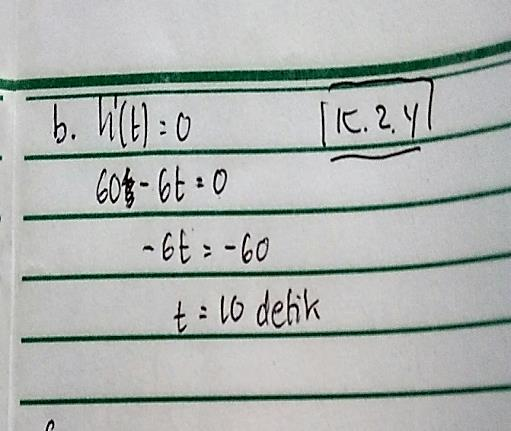 b. h'(t) = 0 [K.2.4]
60 - 6t = 0
-6t = -60
t = 10 detik